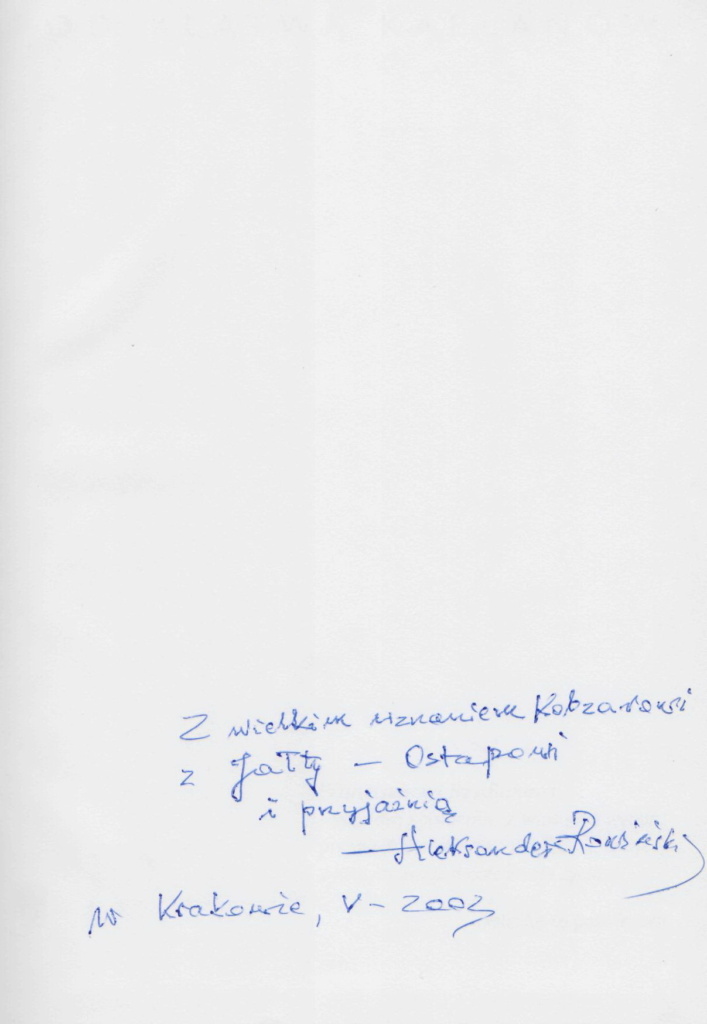 Z wielkim uznaniem Kobzarowi
z Jałty – Ostapowi
i przyjaźnią
– Aleksander
w Krakowie, V – 2003